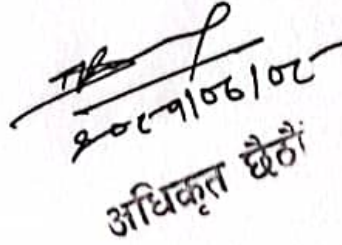 २०८१।०६।०८
अधिकृत छैठौं